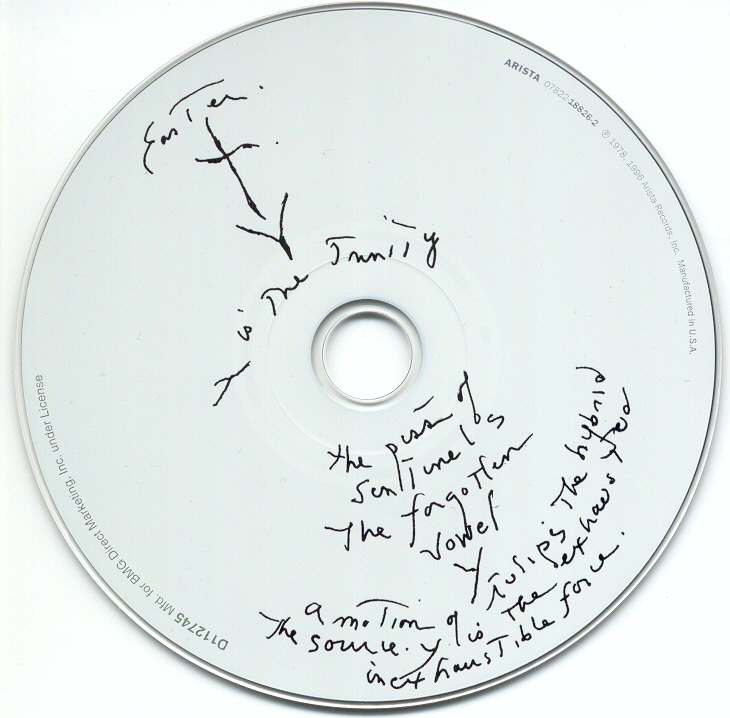 Easter.
Y is The Trinity
the piss of
sentinels
The forgotten
vowel
Y
a motion of tulips. The hybrid
The source. y is the exhausted
inexhaustible force.
ARISTA 07822-18826-2 ℗ 1978, 1996 Arista Records, Inc. Manufactured in U.S.A.
D112745 Mfd. for BMG Direct Marketing, Inc. under License